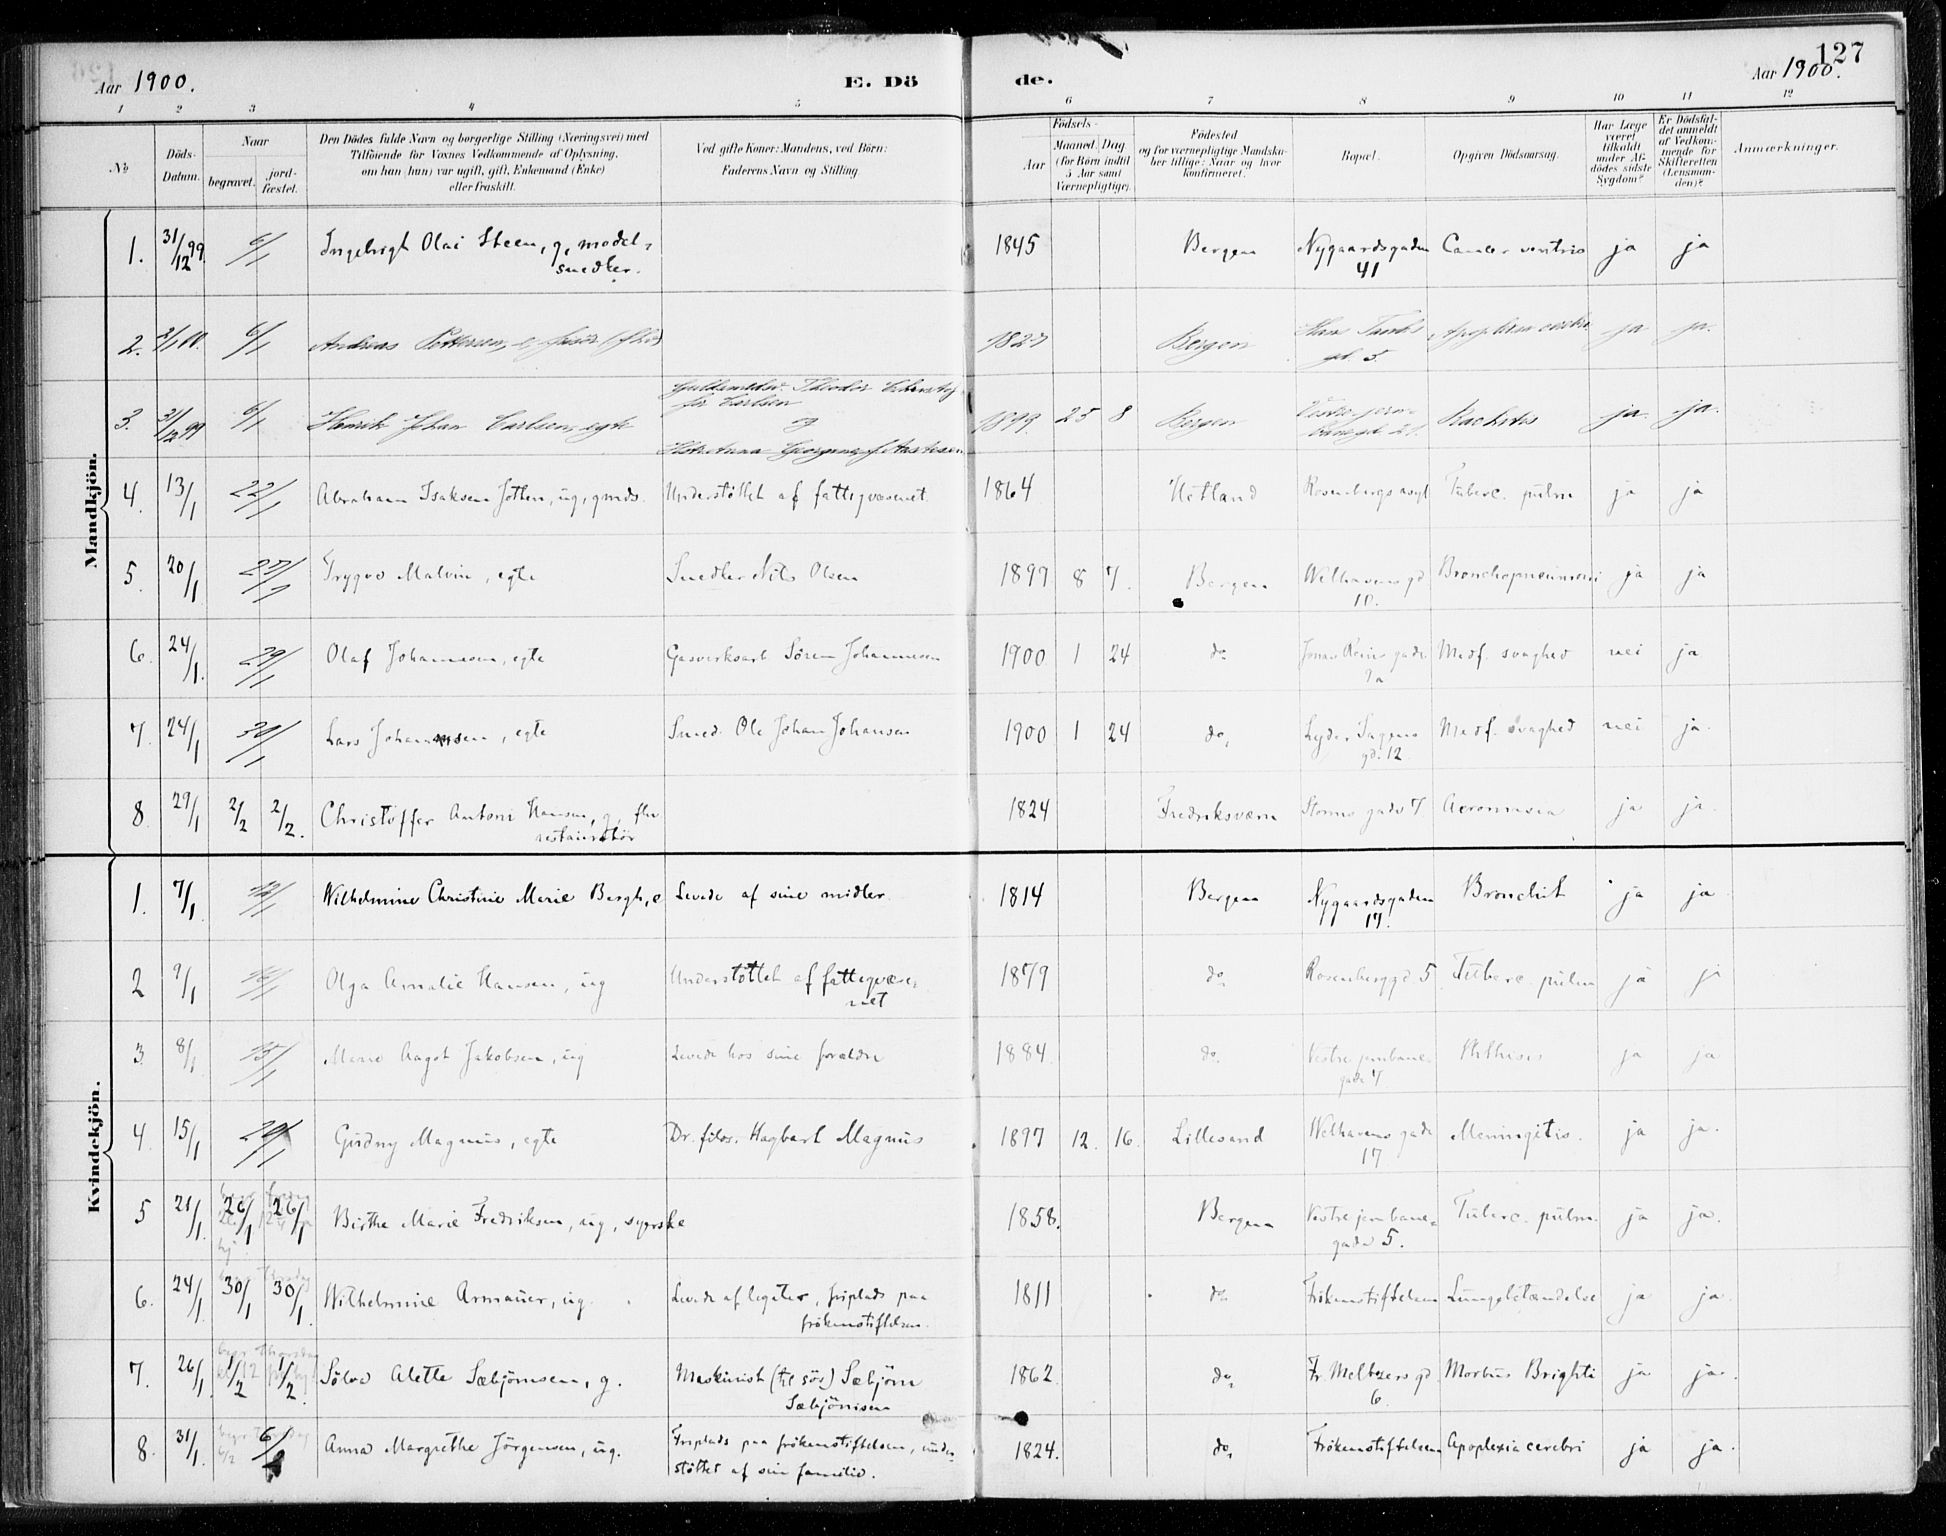 127
Aar 1900.
E. Dö
de.
Aar 1900.
1 2 3 4 5 6 7 8 9 10 11 12
No
Döds-
Datum.
Naar
begravet.
jord-
fæstet.
Den Dödes fulde Navn og borgerlige Stilling (Næringsvei) med
Tilföiende for Voxnes Vedkommende af Oplysning,
om han (hun) var ugift, gift, Enkemand (Enke)
eller fraskilt.
Ved gifte Koner: Mandens, ved Börn:
Faderens Navn og Stilling
Födsels-
Aar
Maaned.
Dag
(for Börn indtil
5 Aar samt
Værnepligtige).
Födested
og for værnepligtige Mandska-
ber tillige: Naar og hvor
konfirmeret.
Bopæl.
Opgiven Dödsaarsag.
Har Læge
været
tilkaldt
under Af-
dödes sidste
Sygdom?
Er Dödsfal-
det anmeldt
af Vedkom-
mende for
Skifteretten
(Lensman-
den)?
Anmærkninger.
Mandkjön.
1. 31/12 99. 6/1 Ingebrigt Olai Steen, g, model-
snedker. 1845 Bergen Nygaardsgaden
41 Cancer ventris ja ja
2. 6/1 Andreas Pettersen, 1827 Bergen
5 ja ja.
3. 31/12 99 6/1 Henrik Johan Carlsen, egte Theodor
Carlsen
og
1899. 25 8 Bergen Rachitis ja. ja.
4. 13/1 22/1 Abraham Isaksen Jotten, ug, gmds. Understöttet af fattigvæsenet. 1864 Hetland Rosenbergs asyl Tuberc. pulm ja ja
5. 20/1 27/1 Trygve Malvin, egte Snedker Nils Olsen 1899 8 7. Bergen Welhavens gd
10. Bronchopneumoni ja ja
6. 24/1. 29/1 Olaf Johannesen, egte Gasverksarb Sören Johannesen 1900 1 24 do Jonas Reins gade
9a Medf. svaghed nei ja
7. 24/1 30/1 Lars Johansen, egte Smed Ole Johan Johansen 1900 1 24 do, Lyder Sagens
gd. 12 Medf. svaghed nei ja.
8. 29/1 2/2 2/2. Christoffer Antoni Hansen, g, fhv
restauratör 1824 Fredriksværn Storms gade 7 ja ja.
Kvindekjön.
1. 7/1. 12/1 Wilhelmine Christine Marie Bergh, e Levede af sine midler. 1814 Bergen Nygaardsgaden
17. Bronchit ja ja.
2 9/1 16/1 Olga Amalie Hansen, ug Understöttet af fattigvæse-
net 1879 do, Rosenberggd 5 Tuberc. pulm ja ja
3. 8/1 15/1 Marie Aagot Jakobsen, ug Levede hos sine forældre 1884. do. Vestre jernbane-
gade 7 Phthisis ja ja
4. 15/1 20/1 Gudny Magnus, egte Dr. filos. Hagbart Magnus 1897 12. 16. Lillesand Welhavens gade
17 Meningitis. ja ja.
5 21/1. 26/1 26/1 Birthe Marie Fredriksen, ug, syerske 1858. Bergen Vestre jernbane-
gade 5. Tuberc. pulm. ja ja.
6. 24/1. 30/1 30/1. Wilhelmine Armauer, ug. Levede af legater, friplads paa
frökenstiftelsen. 1811 do. Frökenstiftelsen Lungebetændelse ja ja.
7. 26/1. 1/2 1/2. Sölve Alette Sæbjörnsen, g. Maskinist (til sös) Sæbjörn
Sæbjörnsen 1862. do, Fr. Meltzers gd
6. Morbus Brighti ja ja.
8. 31/1. 6/2 Anna Margrethe Jörgensen, ug. Friplads paa frökenstiftelsen, under-
stöttet af sin familie. 1824. do, Frökenstiftelsen Apoplexia cerebri ja ja.